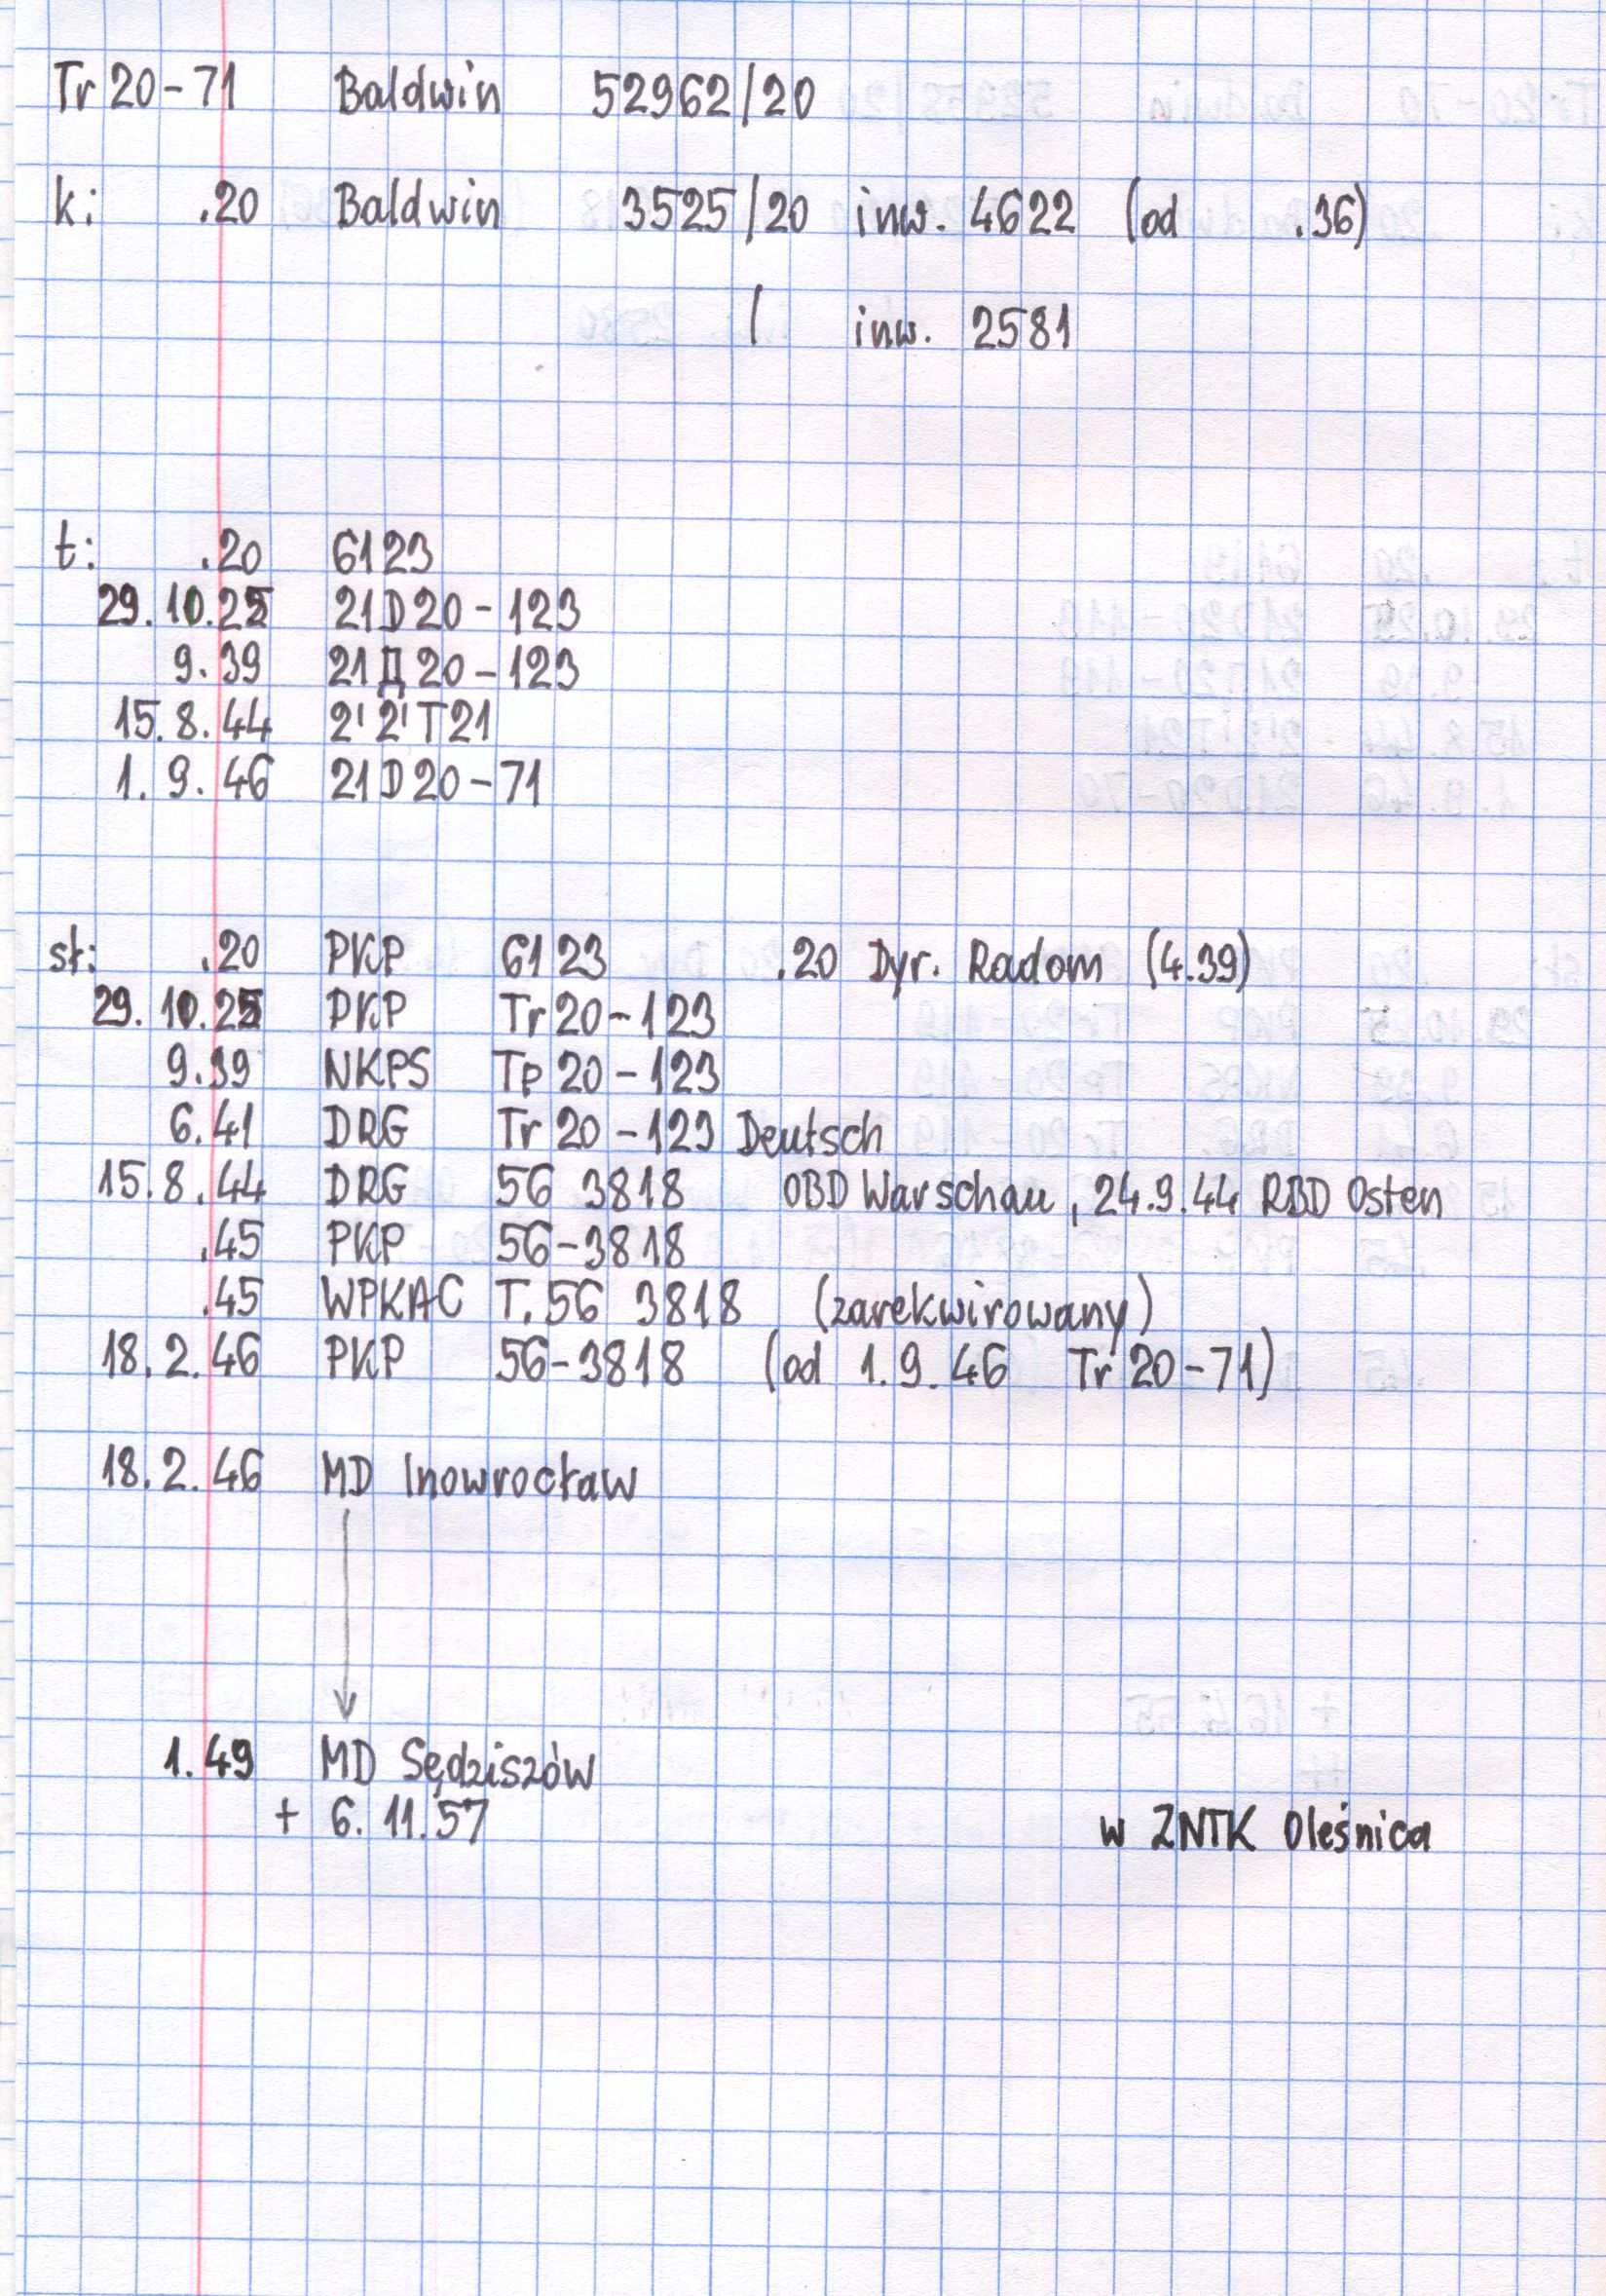 Tr 20-71 Baldwin 52962/20
k: .20 Baldwin 3525/20 inw. 4622 (od .36)
/ inw. 2581
t: .20 6123
29.10.25 21D20-123
9.39 21Д20-123
15.8.44 2'2'T21
1.9.46 21D20-71
st: .20 PKP 6123 .20 Dyr. Radom (4.39)
29.10.25 PKP Tr 20-123
9.39 NKPS Tp 20-123
6.41 DRG Tr 20-123 Deutsch
15.8.44 DRG 56 3818 OBD Warschau, 24.9.44 RBD Osten
.45 PKP 56-3818
.45 WPKAC T.56 3818 (zarekwirowany)
18.2.46 PKP 56-3818 (od 1.9.46 Tr 20-71)
18.2.46 MD Inowrocław
1.49 MD Sędziszów
+ 6.11.57 w ZNTK Oleśnica